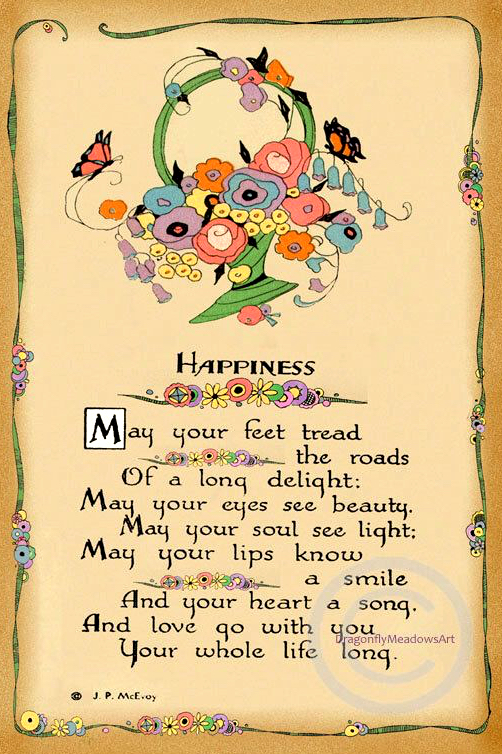 HAPPINESS
May your feet tread
the roads
Of a long delight:
May your eyes see beauty.
May your soul see light;
May your lips know
a smile
And your heart a song.
And love go with you
Your whole life long.
©
DragonflyMeadowsArt
© J. P. McEvoy